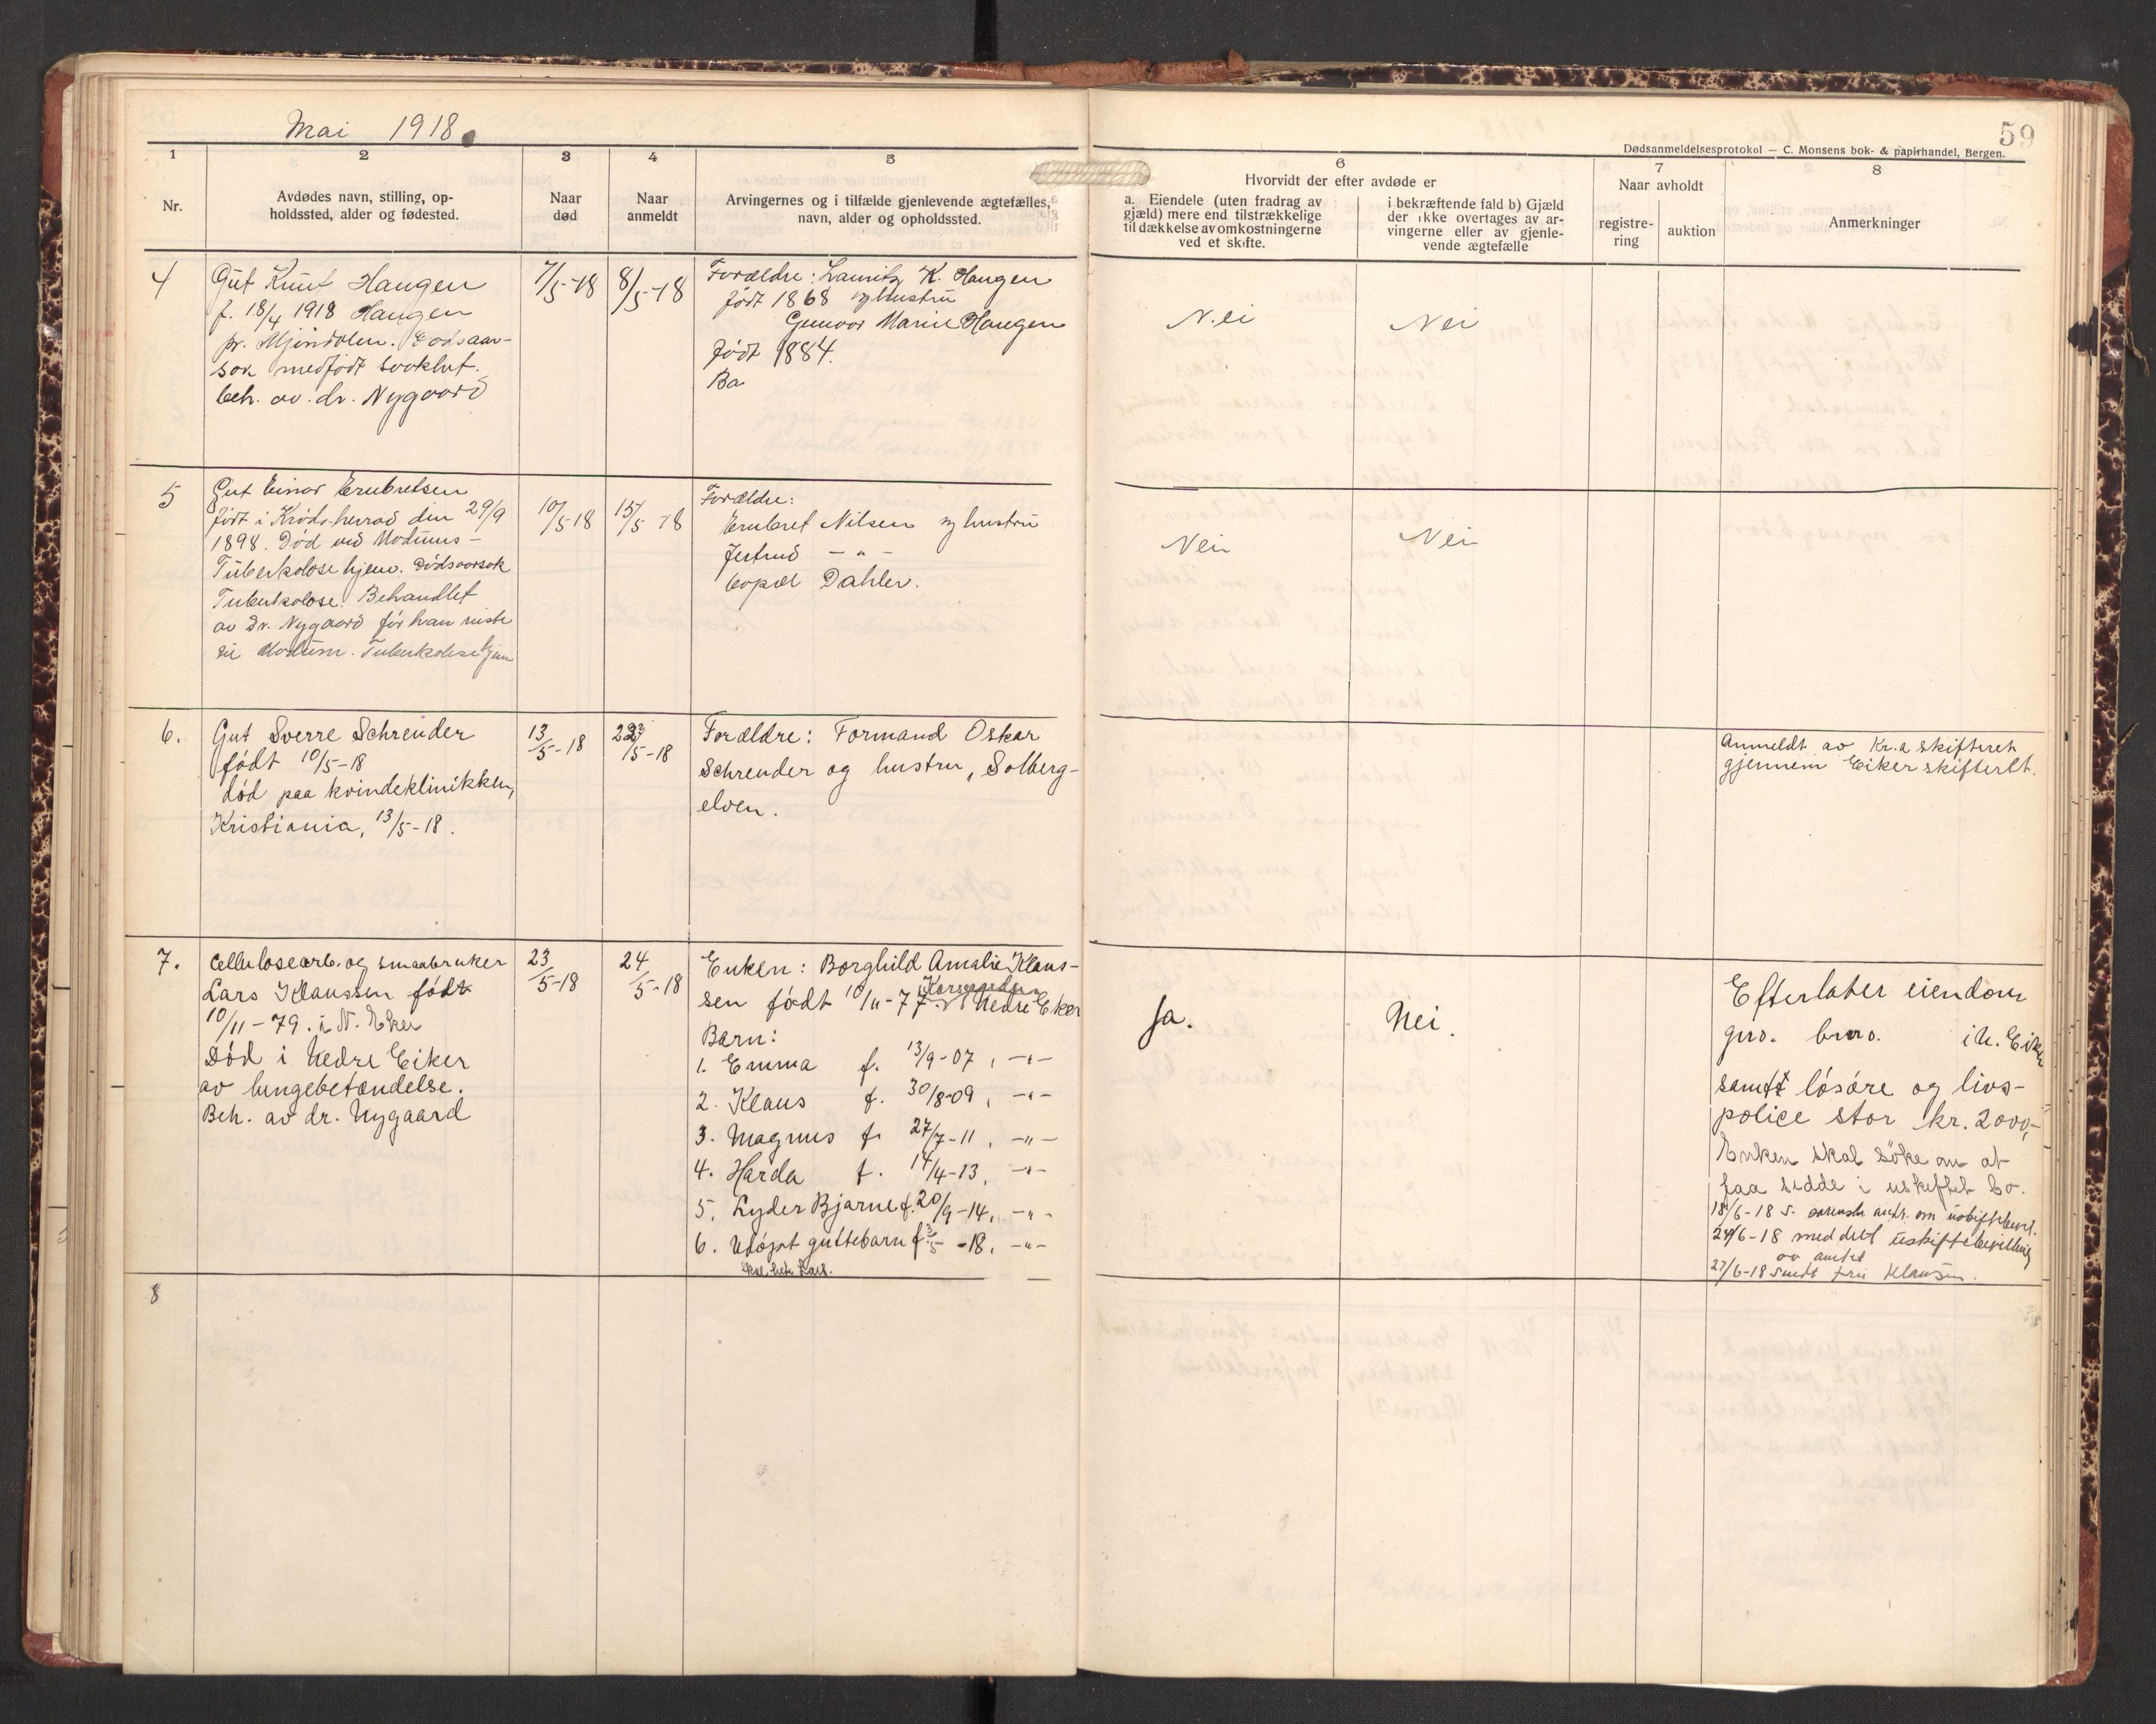 Mai 1918.
59
Dødsanmeldelsesprotokol — C. Monsens bok- & papirhandel, Bergen.
1
2
3
4
5
6
7
8
Nr.
Avdødes navn, stilling, op-
holdssted, alder og fødested.
Naar
død
Naar
anmeldt
Arvingernes og i tilfælde gjenlevende ægtefælles,
navn, alder og opholdssted.
Hvorvidt der efter avdøde er
a. Eiendele (uten fradrag av
gjæld) mere end tilstrækkelige
til dækkelse av omkostningerne
ved et skifte.
i bekræftende fald b) Gjæld
der ikke overtages av ar-
vingerne eller av gjenle-
vende ægtefælle
Naar avholdt
registre-
ring
auktion
Anmerkninger
4
Gut Knut Haugen
f. 18/4 1918 Haugen
pr. Mjøndalen. Dødsaar-
sak medfødt svakhet.
beh. av dr. Nygaard
7/5-18
8/5-18
Forældre: Lauritz K. Haugen
født 1868 og hustru
Gunvor Marie Haugen
født 1884.
Ba
Nei
Nei
5
Gut Einar Erubretsen
født i Krødsherrad den 29/9
1898. Død ved Modums-
Tuberkolosehjem. Dødsaarsak
Tuberkolose. Behandlet
av Dr. Nygaard før han reiste
til Modum. Tuberkolosehjem
10/5-18
15/5-18
Forældre:
Erubret Nilsen og hustru
Jertrud — " —
bopæl Dahlen.
Nei
Nei
6.
Gut Sverre Schrender
født 10/5-18
død paa kvindeklinikken,
Kristiania, 13/5-18.
13/5-18
23/5-18
Forældre: Formand Oskar
Schrender og hustru, Solberg-
elven.
Anmeldt av Kr.a skifteret
gjennem Eiker skifteret.
7.
Cellulosearb. og smaabruker
Lars Klaussen født
10/11-79. i N. Eker
Død i Nedre Eiker
av lungebetændelse.
Beh. av dr. Nygaard
23/5-18
24/5-18
Enken: Borghild Amalie Klaus-
sen født 10/11-77 Nedre Eker
Barn:
1. Emma f. 13/9-07, -"-
2. Klaus f. 30/8-09, -"-
3. Magnus f. 27/7-11, -"-
4. Harda f. 14/4-13, -"-
5. Lyder Bjarne f. 20/9-14, -"-
6. Udøpt guttebarn f. 3/5-18, -"-
skal hete Lars.
Ja.
Nei.
Efterlater eiendom
gno. brno. i N. Eiker
samt løsøre og livs-
police stor kr. 2000,-
Enken skal søke om at
faa sidde i uskiftet bo.
18/6-18 s. andr. om uskiftebevil.
24/6-18 meddelt uskiftebevilling
av amtet
27/6-18 sendt fru Klausen.
8